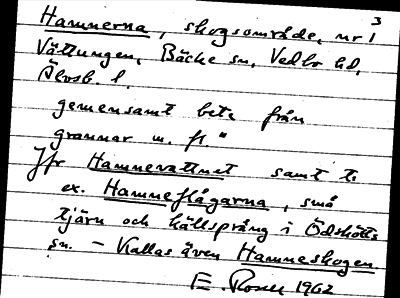 3
Hamnerna, skogsområde, nr 1
Vättungen, Bäcke sn, Vedbo hd,
Älvsb. l.
gemensamt bete från
grannar m. fl. "
Jfr Hamnevattnet samt t.
ex. Hamneflågarna, små
tjärn och källsprång i Ödskölts
sn. – Kallas även Hamneskogen.
E. Rosell 1962